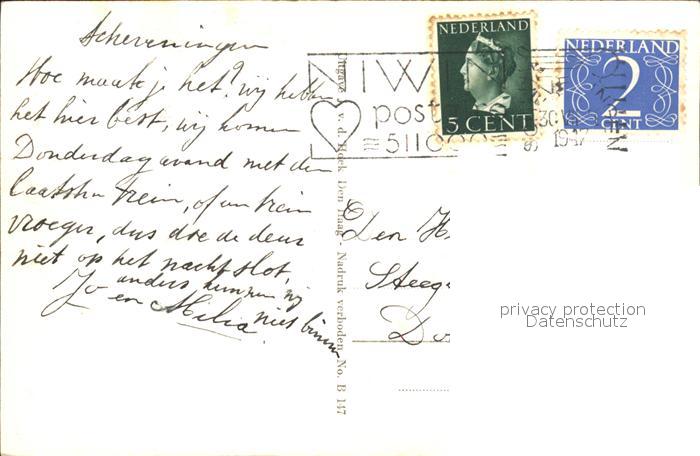 Scheveningen
Hoe maak je het? wij hebben
het hier best, wij komen
Donderdagavond met den
laatsten trein, of een trein
vroeger, dus doe de deur
niet op het nachtslot,
anders kunnen wij
niet binnen
Jo en
Uitgave v. d. Hoek Den Haag - Nadruk verboden - No. B 147
NEDERLAND
5 CENT
NEDERLAND
2
CENT
NIW
post
5110
30
1947
Den H
Steeg
Do
privacy protection
Datenschutz